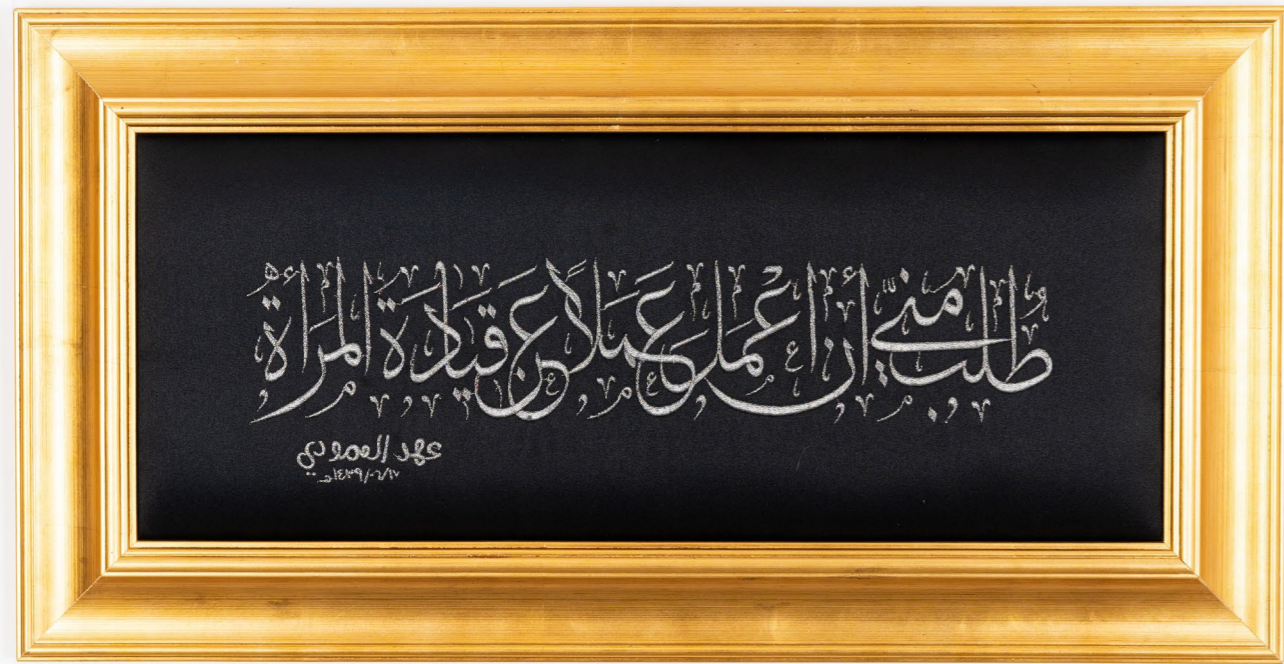 طُلب منّي أن اعْمل عملاً عن قيادة المرأة
عهد العمودي
١٤٣٩/٠٦/١٧هـ